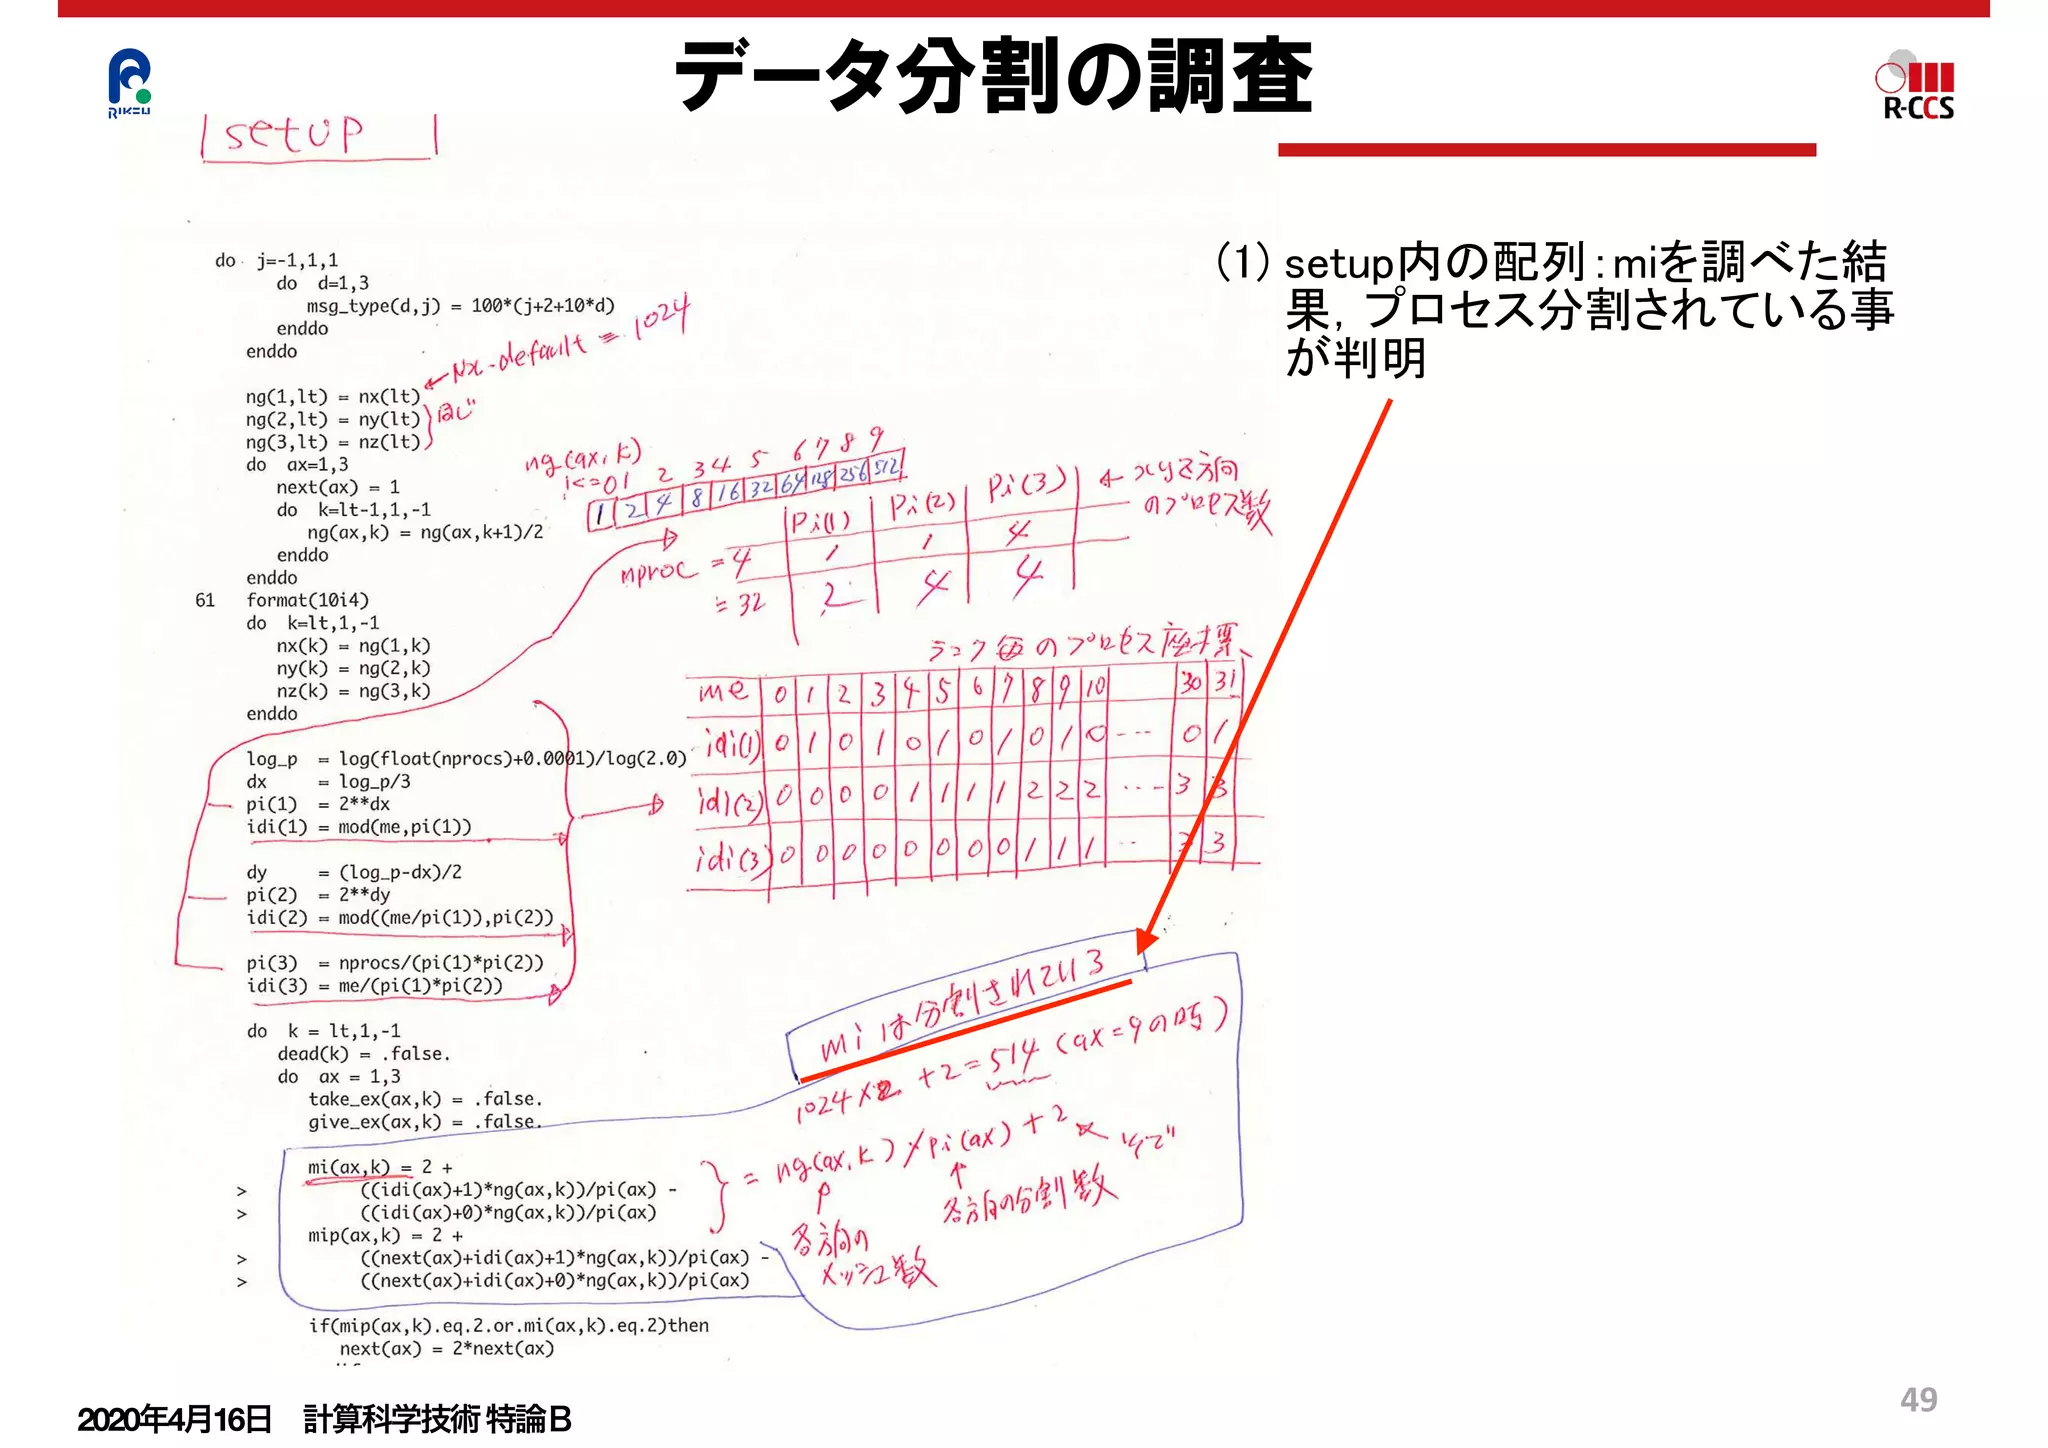 データ分割の調査
RIKEN
R-CCS
setup
(1) setup内の配列：miを調べた結
果，プロセス分割されている事
が判明
do j=-1,1,1
do d=1,3
msg_type(d,j) = 100*(j+2+10*d)
enddo
enddo
← Nx-default = 1024
ng(1,lt) = nx(lt)
ng(2,lt) = ny(lt)
ng(3,lt) = nz(lt)
同じ
do ax=1,3
next(ax) = 1
do k=lt-1,1,-1
ng(ax,k) = ng(ax,k+1)/2
enddo
enddo
61 format(10i4)
do k=lt,1,-1
nx(k) = ng(1,k)
ny(k) = ng(2,k)
nz(k) = ng(3,k)
enddo
ng(ax,k)
k=0 1 2 3 4 5 6 7 8 9
1 2 4 8 16 32 64 128 256 512
Pi(1) Pi(2) Pi(3) ← xyz方向
のプロセス数
nproc =4 1 1 4
=32 2 4 4
ランク毎のプロセス座標
me 0 1 2 3 4 5 6 7 8 9 10 30 31
idi(1) 0 1 0 1 0 1 0 1 0 1 0 --- 0 1
idi(2) 0 0 0 0 1 1 1 1 2 2 2 --- 3 3
idi(3) 0 0 0 0 0 0 0 0 1 1 1 -- 3 3
log_p = log(float(nprocs)+0.0001)/log(2.0)
dx = log_p/3
pi(1) = 2**dx
idi(1) = mod(me,pi(1))
dy = (log_p-dx)/2
pi(2) = 2**dy
idi(2) = mod((me/pi(1)),pi(2))
pi(3) = nprocs/(pi(1)*pi(2))
idi(3) = me/(pi(1)*pi(2))
do k = lt,1,-1
dead(k) = .false.
do ax = 1,3
take_ex(ax,k) = .false.
give_ex(ax,k) = .false.
mi(ax,k) = 2 +
> ((idi(ax)+1)*ng(ax,k))/pi(ax) -
> ((idi(ax)+0)*ng(ax,k))/pi(ax)
mip(ax,k) = 2 +
> ((next(ax)+idi(ax)+1)*ng(ax,k))/pi(ax) -
> ((next(ax)+idi(ax)+0)*ng(ax,k))/pi(ax)
if(mip(ax,k).eq.2.or.mi(ax,k).eq.2)then
next(ax) = 2*next(ax)
miは分割されている
+2=514 (ax=9の時)
= ng(ax,k)/pi(ax)+2
各方向の分割数
各方向の
メッシュ数
2020年4月16日 計算科学技術 特論B
49